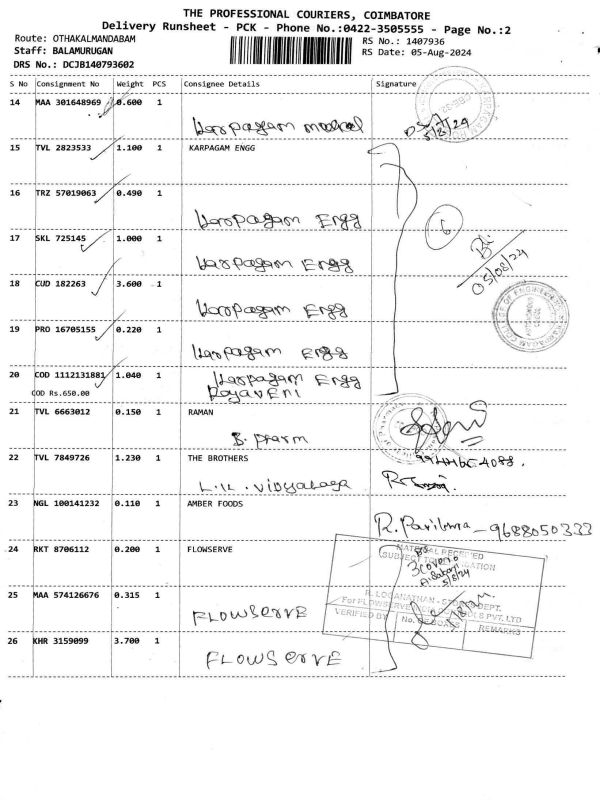 THE PROFESSIONAL COURIERS, COIMBATORE
Delivery Runsheet - PCK - Phone No.:0422-3505555 - Page No.:2
Route: OTHAKALMANDABAM
RS No.: 1407936
Staff: BALAMURUGAN
RS Date: 05-Aug-2024
DRS No.: DCJB140793602
S No Consignment No Weight PCS Consignee Details Signature
14 MAA 301648969 0.600 1
Karpagam medical
5/8/24
15 TVL 2823533 1.100 1 KARPAGAM ENGG
16 TRZ 57019063 0.490 1
Karpagam Engg
6
17 SKL 725145 1.000 1
Karpagam Engg
05/08/24
18 CUD 182263 3.600 1
Karpagam Engg
19 PRO 16705155 0.220 1
Karpagam Engg
20 COD 1112131881 1.040 1 Karpagam Engg
COD Rs.650.00 Royaveni
21 TVL 6663012 0.150 1 RAMAN
B. Pharm
22 TVL 7849726 1.230 1 THE BROTHERS
L.K. Vidyalaya
23 NGL 100141232 0.110 1 AMBER FOODS
9688050333
24 RKT 8706112 0.200 1 FLOWSERVE
MATERIAL RECEIVED
3 cover
5/8/24
25 MAA 574126676 0.315 1
FLOWSERVE
R. LOGANATHAN - STORES DEPT.
VERIFIED BY
REMARKS
26 KHR 3159099 3.700 1
FLOWSERVE